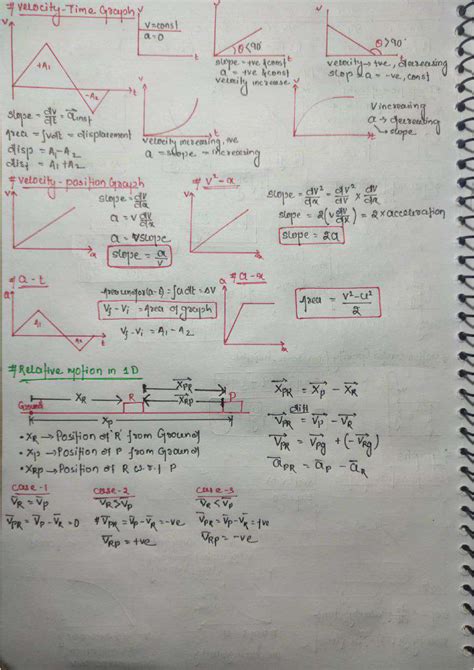 # Velocity-Time Graph
v
+A1
-A2
t
v
v=const
a=0
t
v
θ<90°
t
slope = +ve & const
a = +ve & const
velocity increase
v
θ>90°
t
velocity → +ve, decreasing
slop → a = -ve, const
slope = dv/dt = a⃗ inst
Area = ∫vdt = displacement
disp = A1-A2
dist = A1+A2
v
t
velocity increasing, +ve
a = slope = increasing
v
t
v increasing
a → decreasing
↳ slope
# Velocity-position Graph
v
x
slope = dv/dx
a = v dv/dx
a = v slope
slope = a/v
# v²-x
x
slope = dv²/dx = dv²/dv × dv/dx
slope = 2(v dv/dx) = 2 × acceleration
slope = 2a
# a-t
a
A1
A2
t
Area under (a-t) = ∫adt = ΔV
Vf - Vi = Area of graph
Vf - Vi = A1 - A2
# a-x
a
x
Area = (v²-u²)/2
# Relative motion in 1D
X⃗PR
X⃗RP
XR
R
P
Ground
XP
• XR → Position of R from Ground
• XP → Position of P from Ground
• XRP → Position of R w.r.t P
X⃗PR = X⃗P - X⃗R
diff
V⃗PR = V⃗P - V⃗R
V⃗PR = V⃗Pg + (-V⃗Rg)
a⃗PR = a⃗P - a⃗R
case-1
V⃗R = V⃗P
V⃗PR = V⃗P - V⃗R = 0
case-2
V⃗R > V⃗P
V⃗PR = V⃗P - V⃗R = -ve
V⃗RP = +ve
case-3
V⃗R < V⃗P
V⃗PR = V⃗P - V⃗R = +ve
V⃗RP = -ve